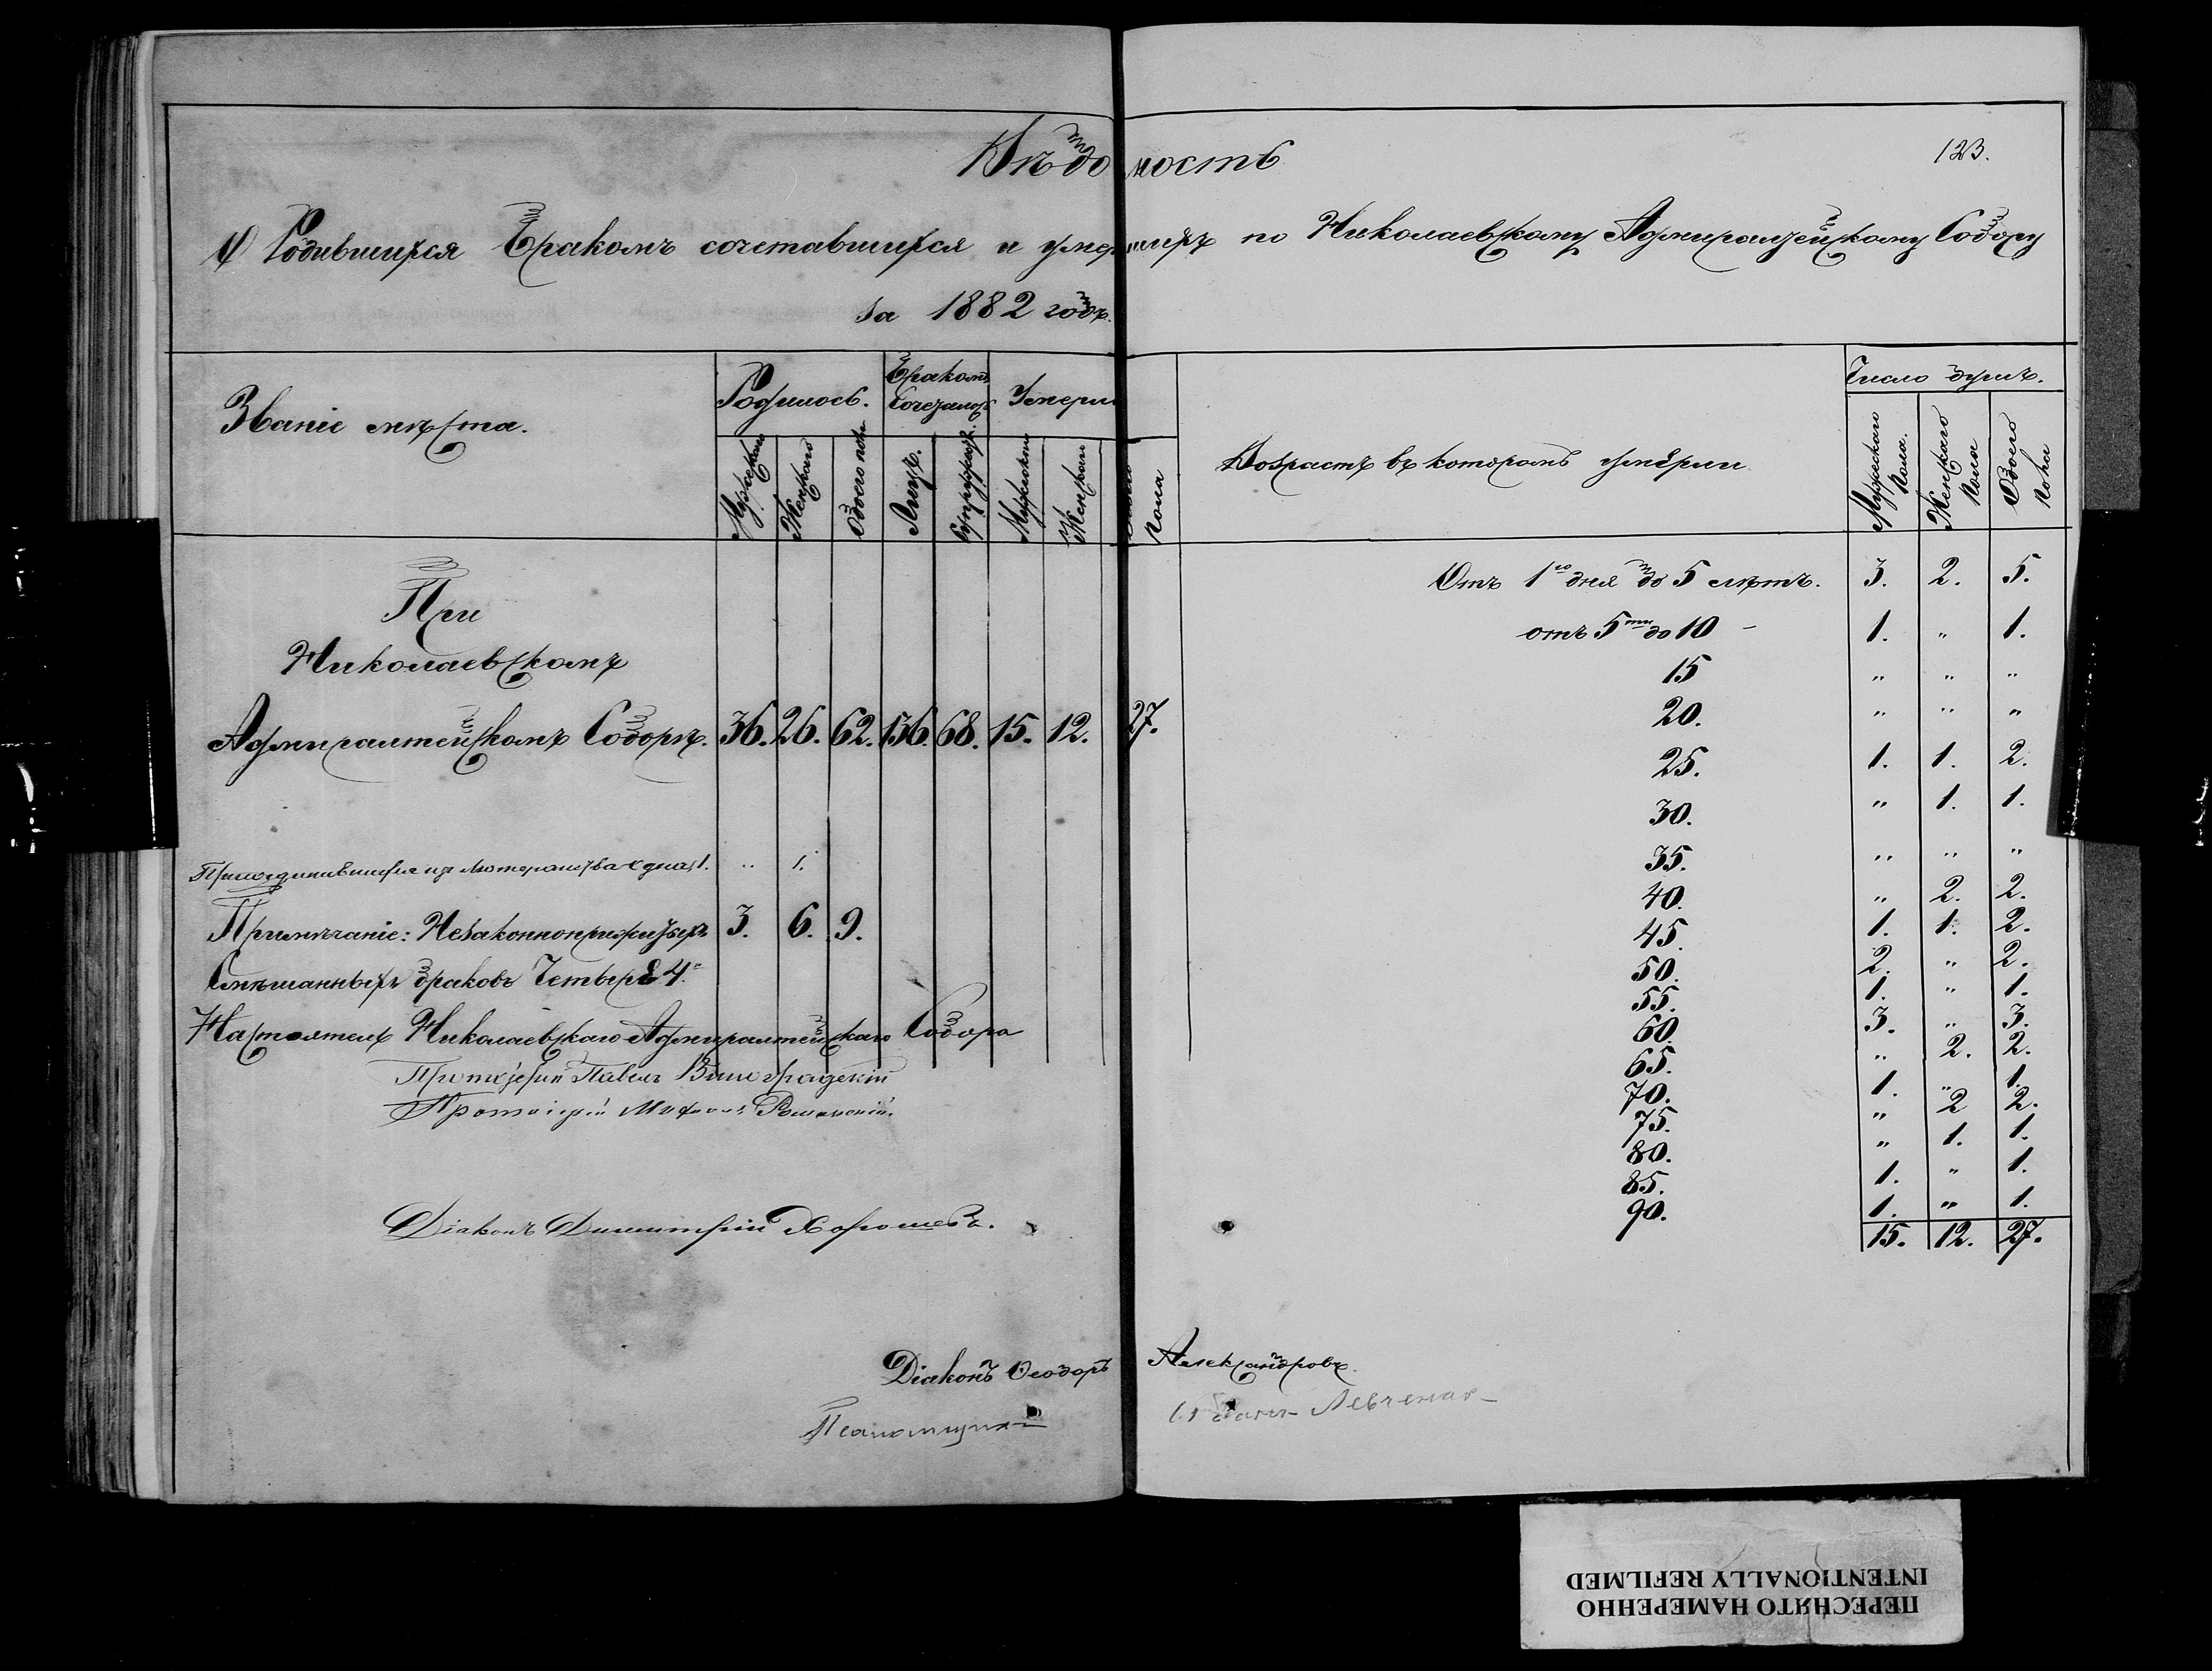 Вѣдомость
123.
О Родившихся Бракомъ сочетавшихся и умершихъ по Николаевскому Адмиралтейскому Собору
за 1882 годъ.
Званіе мѣста.
Родилось.
Бракомъ Сочеталось
Умерли
Мужскаго
Женскаго
Обоего пола
Лицъ.
Супружествъ
Мужскаго
Женскаго
Обоего пола
Возрастъ въ которомъ умерли
Число душъ.
Мужескаго пола.
Женскаго пола
Обоего пола
При
Николаевскомъ
Адмиралтейскомъ Соборѣ. 36. 26. 62. 136. 68. 15. 12. 27.
Присоединившихся изъ Лютеранства одна 1. " 1.
Примѣчаніе: Незаконноприжитыхъ 3. 6. 9.
Смѣшанныхъ браковъ Четыре 4.
Настоятель Николаевскаго Адмиралтейскаго Собора
Протоіерей Павелъ Виноградскій
Протоіерей Михаилъ
Діаконъ Димитрій Хорошевъ.
Діаконъ Ѳеодоръ Александровъ.
Псаломщикъ
Отъ 1го дня до 5 лѣтъ. 3. 2. 5.
отъ 5ти до 10 - 1. " 1.
15 " " "
20. " " "
25. 1. 1. 2.
30. " 1. 1.
35. " " "
40. " 2. 2.
45. 1. 1. 2.
50. 2. " 2.
55. 1. " 1.
60. 3. " 3.
65. " 2. 2.
70. 1. " 1.
75. " 2 2.
80. " 1. 1.
85. 1. " 1.
90. 1. " 1.
15. 12. 27.
ПЕРЕСНЯТО НАМЕРЕННО
INTENTIONALLY REFILMED